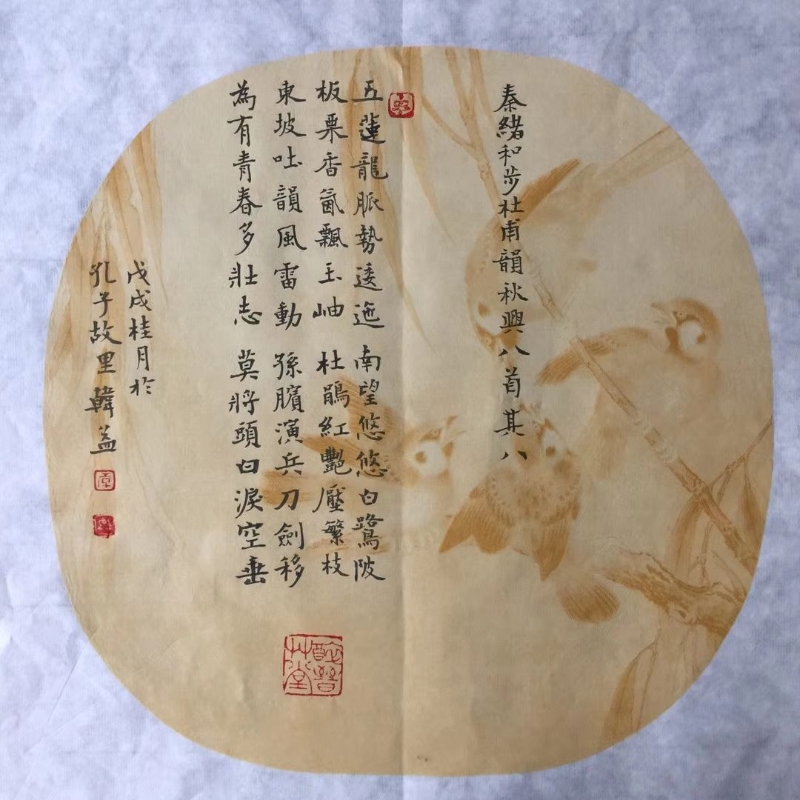 秦緒和步杜甫韻秋興八首其八
五蓮龍脈勢逶迤 南望悠悠白鷺陂
板栗香氤飄玉岫 杜鵑紅艷壓繁枝
東坡吐韻風雷動 孫臏演兵刀劍移
為有青春多壯志 莫將頭白淚空垂
戊戌桂月於
孔子故里韓益